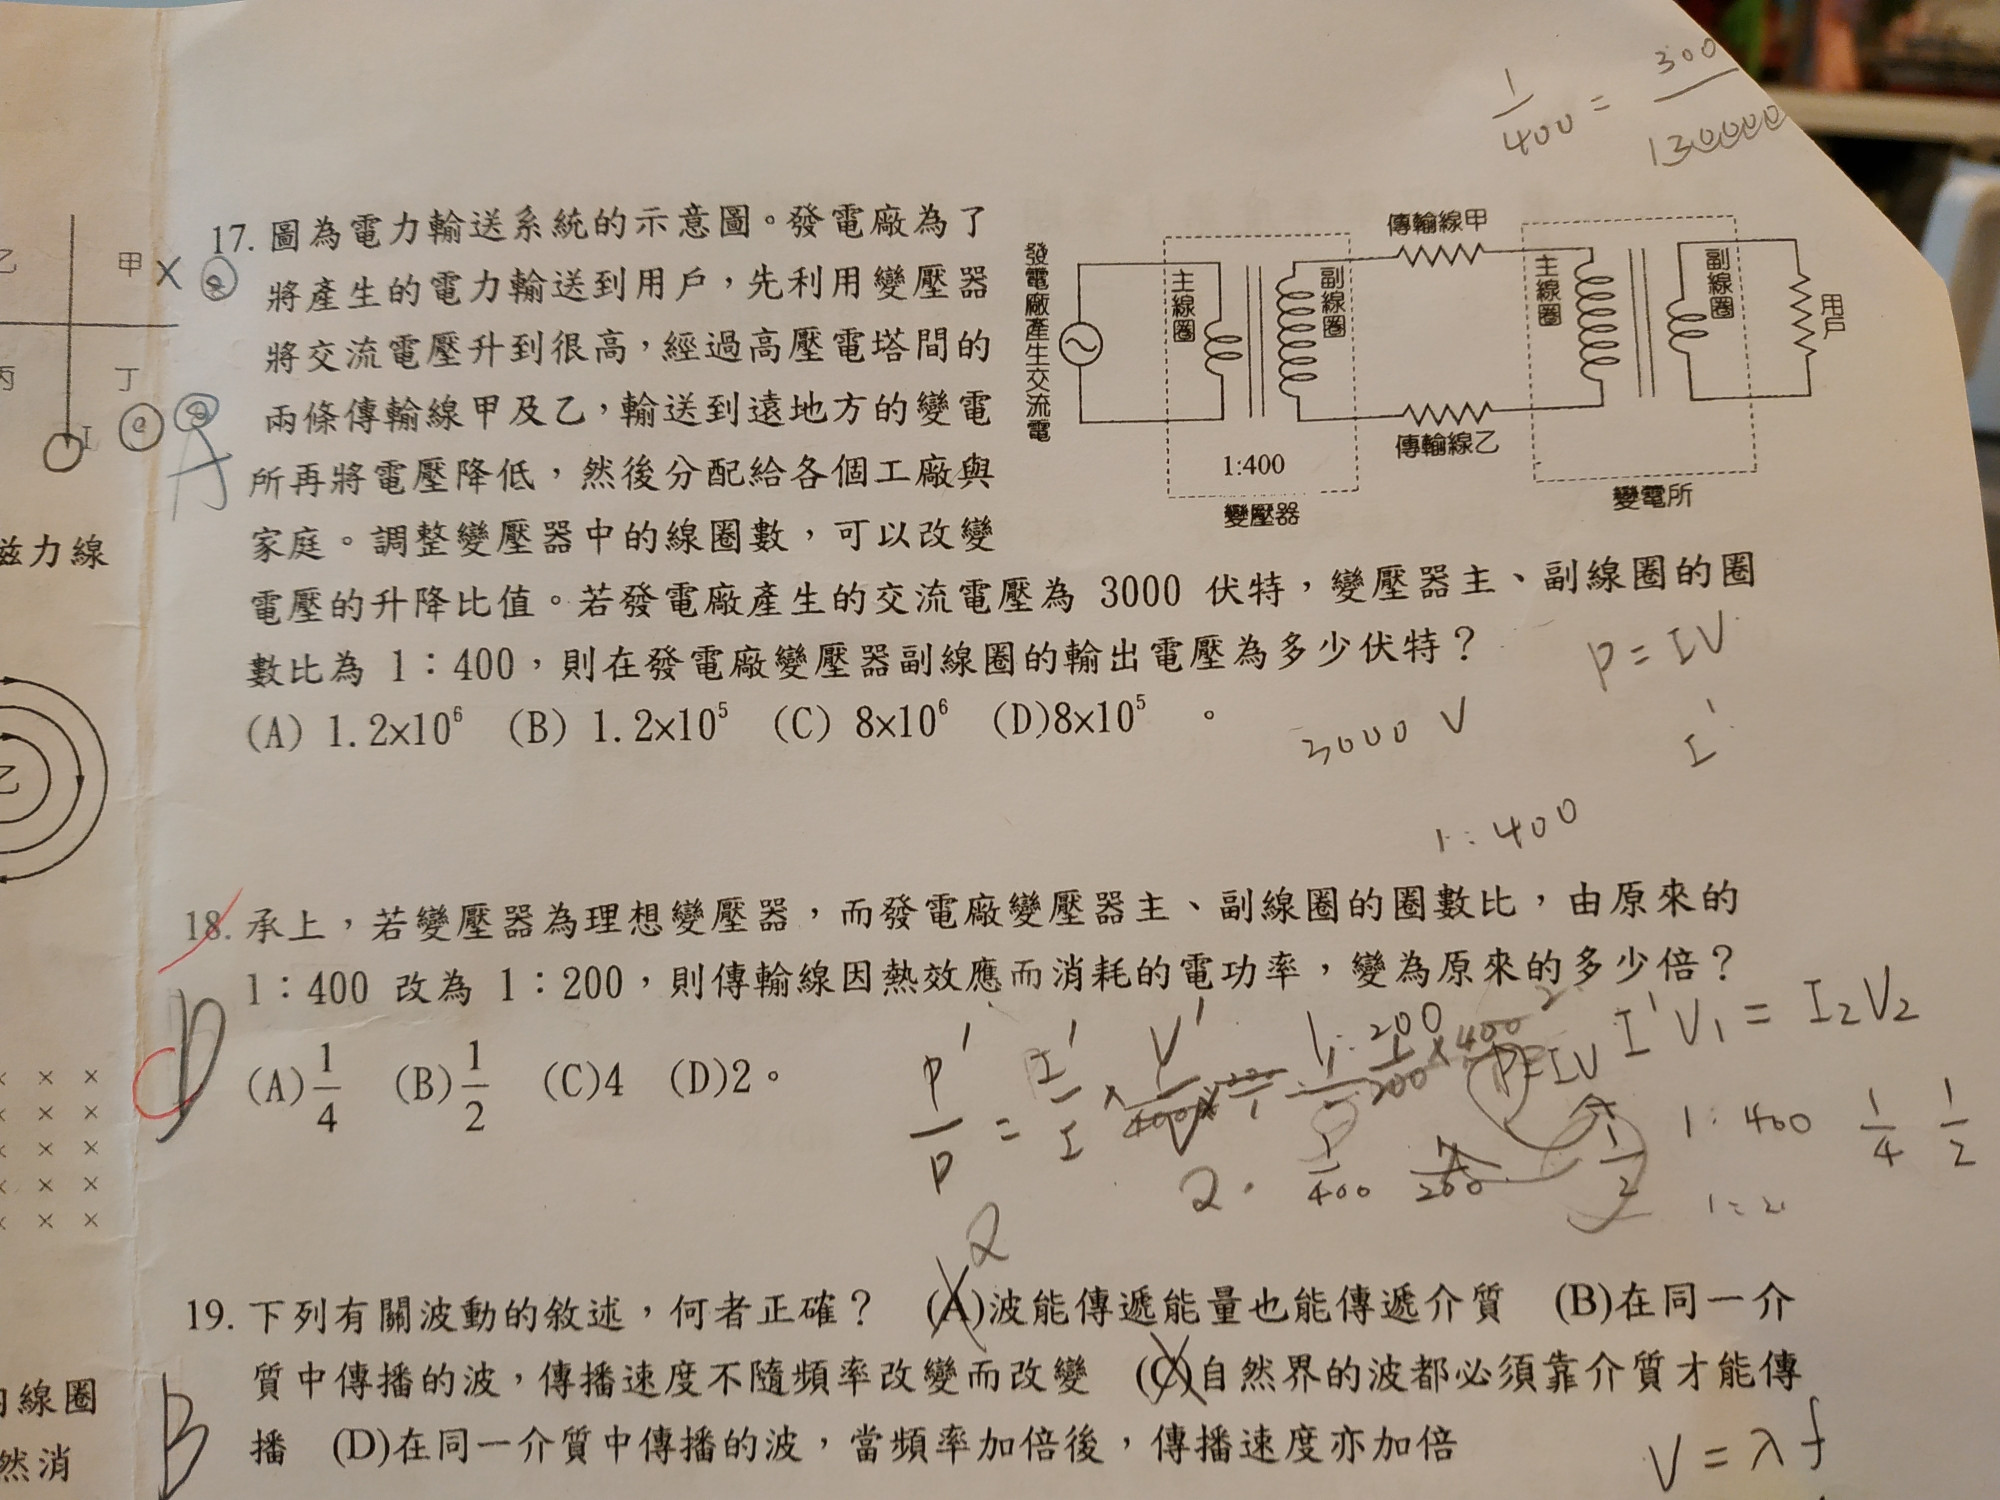 1/400 = 300/130000
17. 圖為電力輸送系統的示意圖。發電廠為了
將產生的電力輸送到用戶，先利用變壓器
將交流電壓升到很高，經過高壓電塔間的
兩條傳輸線甲及乙，輸送到遠地方的變電
所再將電壓降低，然後分配給各個工廠與
家庭。調整變壓器中的線圈數，可以改變
電壓的升降比值。若發電廠產生的交流電壓為 3000 伏特，變壓器主、副線圈的圈
數比為 1：400，則在發電廠變壓器副線圈的輸出電壓為多少伏特？
(A) 1.2×10⁶ (B) 1.2×10⁵ (C) 8×10⁶ (D)8×10⁵ 。
A
發電廠產生交流電
主線圈
副線圈
1:400
變壓器
傳輸線甲
傳輸線乙
主線圈
副線圈
變電所
用戶
P = IV
3000 V
I'
1:400
18. 承上，若變壓器為理想變壓器，而發電廠變壓器主、副線圈的圈數比，由原來的
1：400 改為 1：200，則傳輸線因熱效應而消耗的電功率，變為原來的多少倍？
(A)1/4 (B)1/2 (C)4 (D)2。
D
C
P'/P = I'/I ×
1:200
P=IV
I'V₁ = I₂V₂
1:400
1/4 1/2
2.
1/400
1/2
2
19. 下列有關波動的敘述，何者正確？ (A)波能傳遞能量也能傳遞介質 (B)在同一介
質中傳播的波，傳播速度不隨頻率改變而改變 (C)自然界的波都必須靠介質才能傳
播 (D)在同一介質中傳播的波，當頻率加倍後，傳播速度亦加倍
B
V = λf
乙
甲
丙
丁
I
磁力線
乙
線圈
然消